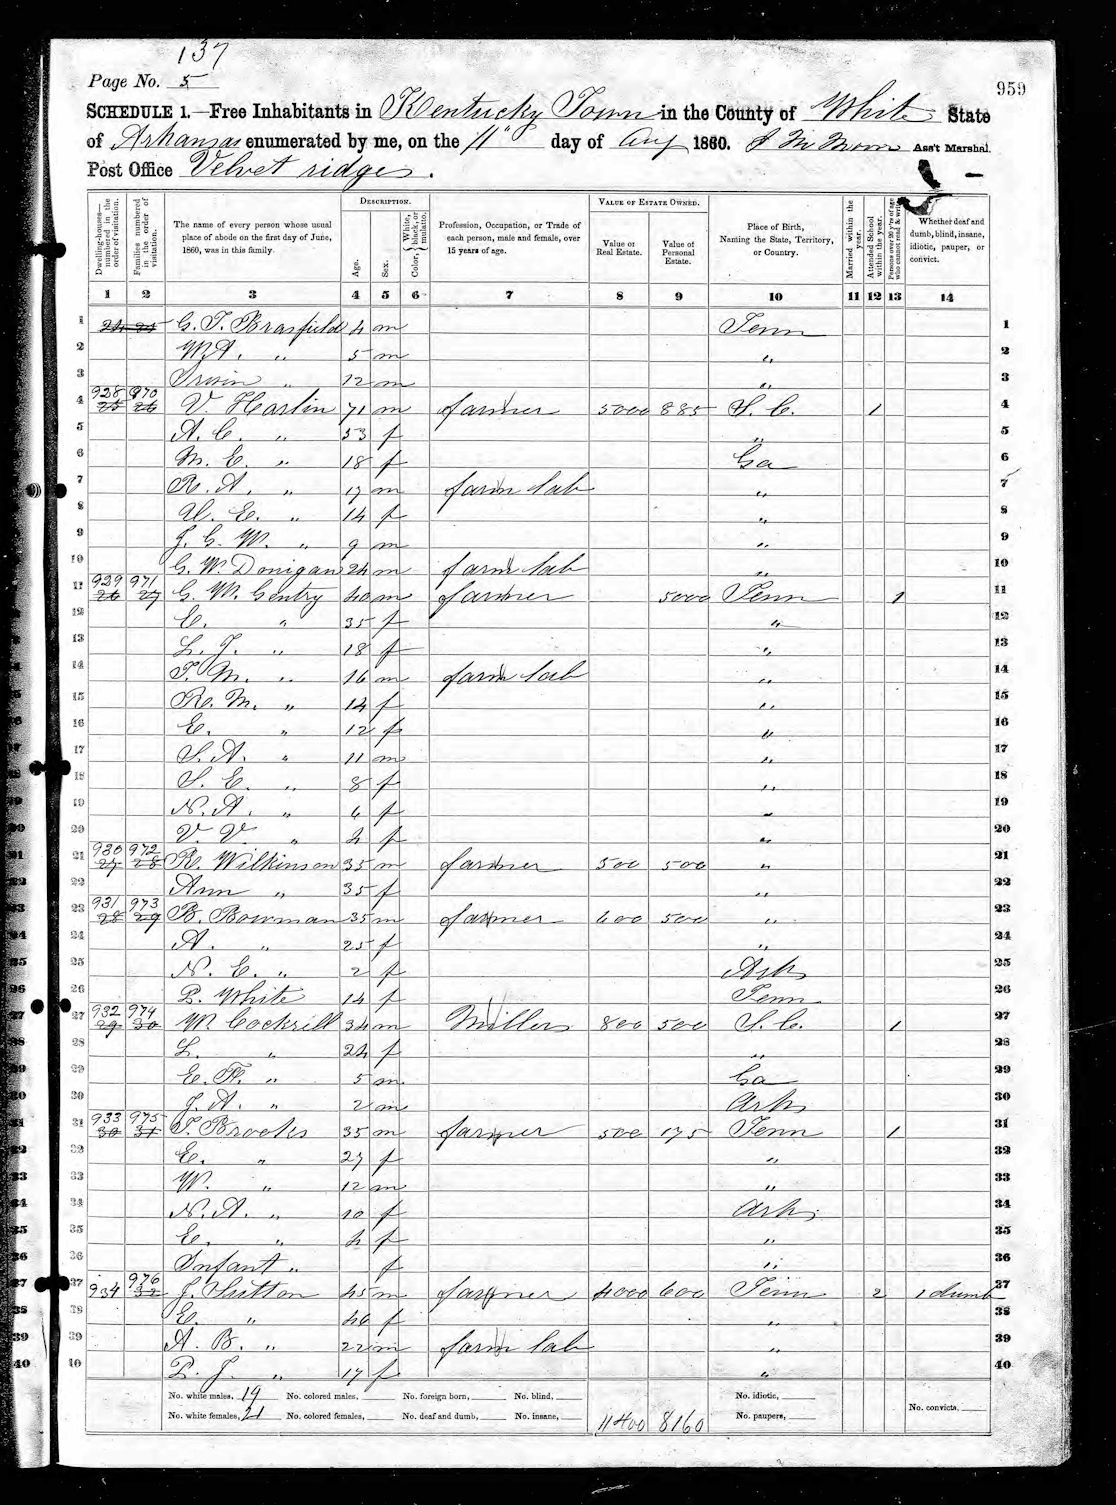 137
Page No. 5
959
SCHEDULE 1.—Free Inhabitants in Kentucky Town in the County of White State
of Arkansas enumerated by me, on the 11" day of Aug 1860. Ass't Marshal.
Post Office Velvet ridge.
Dwelling-houses—numbered in the order of visitation. Families numbered in the order of visitation. The name of every person whose usual place of abode on the first day of June, 1860, was in this family. DESCRIPTION. Age. Sex. Color, White, black, or mulatto. Profession, Occupation, or Trade of each person, male and female, over 15 years of age. VALUE OF ESTATE OWNED. Value of Real Estate. Value of Personal Estate. Place of Birth, Naming the State, Territory, or Country. Married within the year. Attended School within the year. Persons over 20 y'rs of age who cannot read & write. Whether deaf and dumb, blind, insane, idiotic, pauper, or convict.
1 2 3 4 5 6 7 8 9 10 11 12 13 14
1 24 25 G. T. Brasfield 4 m Tenn 1
2 W. A. " 5 m " 2
3 " 12 m " 3
928 970
4 25 26 V. Harlin 71 m farmer 5000 885 S. C. 1 4
5 A. C. " 53 f " 5
6 M. E. " 18 f Ga 6
7 R. A. " 17 m farm lab " 7
8 E. " 14 f " 8
9 J. G. W. " 9 m " 9
10 G. W. Donigan 24 m farm lab " 10
929 971
11 26 27 G. W. Gentry 40 m farmer 5000 Tenn 1 11
12 E. " 35 f " 12
13 L. J. " 18 f " 13
14 T. M. " 16 m farm lab " 14
15 R. M. " 14 f " 15
16 E. " 12 f " 16
17 S. A. " 11 m " 17
18 S. E. " 8 f " 18
19 N. A. " 6 f " 19
20 V. V. " 4 f " 20
930 972
21 27 28 R. Wilkinson 35 m farmer 500 500 " 21
22 Ann " 35 f " 22
931 973
23 28 29 B. Bowman 35 m farmer 600 500 " 23
24 A. " 25 f " 24
25 N. E. " 2 f Ark 25
26 P. White 14 f Tenn 26
932 974
27 29 30 W. Cockrill 34 m Miller 800 500 S. C. 1 27
28 L. " 24 f " 28
29 E. F. " 5 m Ga 29
30 J. A. " 2 m Ark 30
933 975
31 30 31 T. Brooks 35 m farmer 500 175 Tenn 1 31
32 E. " 27 f " 32
33 W. " 12 m " 33
34 N. A. " 10 f Ark 34
35 E. " 4 f " 35
36 Infant " f " 36
976
37 934 32 J. Sutton 45 m farmer 4000 600 Tenn 2 1 dumb 37
38 E. " 46 f " 38
39 A. B. " 22 m farm lab " 39
40 P. J. " 17 f " 40
No. white males, 19 No. colored males, No. foreign born, No. blind, No. idiotic,
No. white females, 21 No. colored females, No. deaf and dumb, No. insane, 11400 8160 No. paupers, No. convicts,